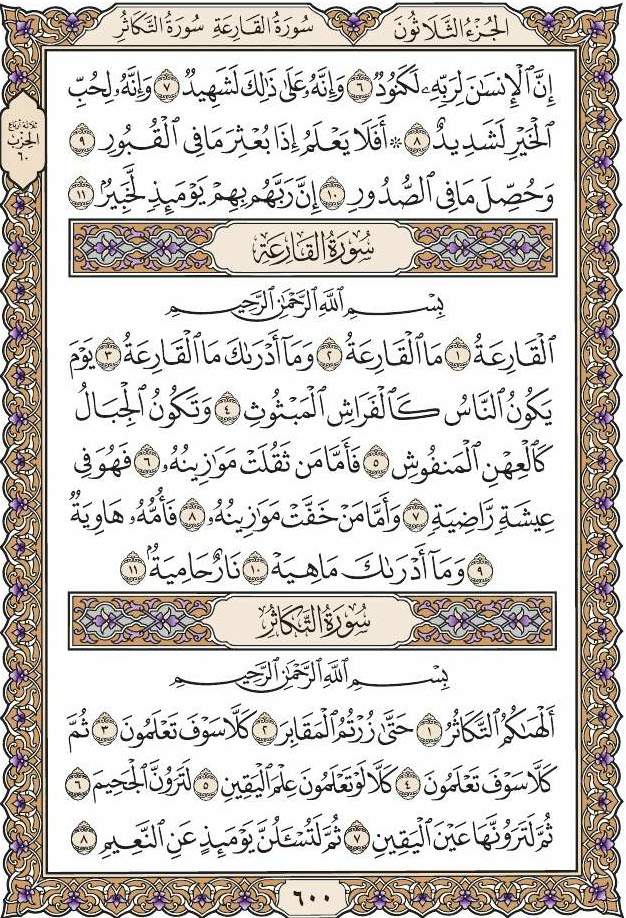 الجُزْءُ الثَّلَاثُونَ سُورَةُ القَارِعَةِ سُورَةُ التَّكَاثُرِ
إِنَّ ٱلْإِنسَٰنَ لِرَبِّهِۦ لَكَنُودٌ ٦ وَإِنَّهُۥ عَلَىٰ ذَٰلِكَ لَشَهِيدٌ ٧ وَإِنَّهُۥ لِحُبِّ
ٱلْخَيْرِ لَشَدِيدٌ ٨ ۞ أَفَلَا يَعْلَمُ إِذَا بُعْثِرَ مَا فِى ٱلْقُبُورِ ٩
وَحُصِّلَ مَا فِى ٱلصُّدُورِ ١٠ إِنَّ رَبَّهُم بِهِمْ يَوْمَئِذٍ لَّخَبِيرٌۢ ١١
ثلاثة أرباع
الحِزْب
٦٠
سُورَةُ القَارِعَةِ
بِسْمِ ٱللَّهِ ٱلرَّحْمَٰنِ ٱلرَّحِيمِ
ٱلْقَارِعَةُ ١ مَا ٱلْقَارِعَةُ ٢ وَمَآ أَدْرَىٰكَ مَا ٱلْقَارِعَةُ ٣ يَوْمَ
يَكُونُ ٱلنَّاسُ كَٱلْفَرَاشِ ٱلْمَبْثُوثِ ٤ وَتَكُونُ ٱلْجِبَالُ
كَٱلْعِهْنِ ٱلْمَنفُوشِ ٥ فَأَمَّا مَن ثَقُلَتْ مَوَٰزِينُهُۥ ٦ فَهُوَ فِى
عِيشَةٍ رَّاضِيَةٍ ٧ وَأَمَّا مَنْ خَفَّتْ مَوَٰزِينُهُۥ ٨ فَأُمُّهُۥ هَاوِيَةٌ
٩ وَمَآ أَدْرَىٰكَ مَا هِيَهْ ١٠ نَارٌ حَامِيَةٌۢ ١١
سُورَةُ التَّكَاثُرِ
بِسْمِ ٱللَّهِ ٱلرَّحْمَٰنِ ٱلرَّحِيمِ
أَلْهَىٰكُمُ ٱلتَّكَاثُرُ ١ حَتَّىٰ زُرْتُمُ ٱلْمَقَابِرَ ٢ كَلَّا سَوْفَ تَعْلَمُونَ ٣ ثُمَّ
كَلَّا سَوْفَ تَعْلَمُونَ ٤ كَلَّا لَوْ تَعْلَمُونَ عِلْمَ ٱلْيَقِينِ ٥ لَتَرَوُنَّ ٱلْجَحِيمَ ٦
ثُمَّ لَتَرَوُنَّهَا عَيْنَ ٱلْيَقِينِ ٧ ثُمَّ لَتُسْـَٔلُنَّ يَوْمَئِذٍ عَنِ ٱلنَّعِيمِ ٨
٦٠٠